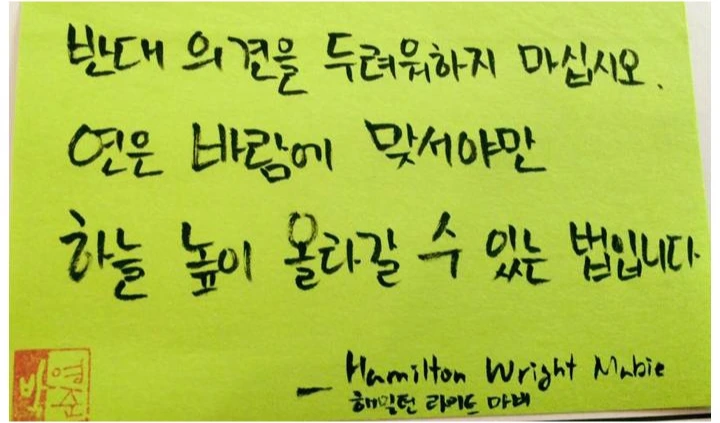 반대 의견을 두려워하지 마십시오.
연은 바람에 맞서야만
하늘 높이 올라갈 수 있는 법입니다
— Hamilton Wright Mabie
해밀턴 라이트 마비